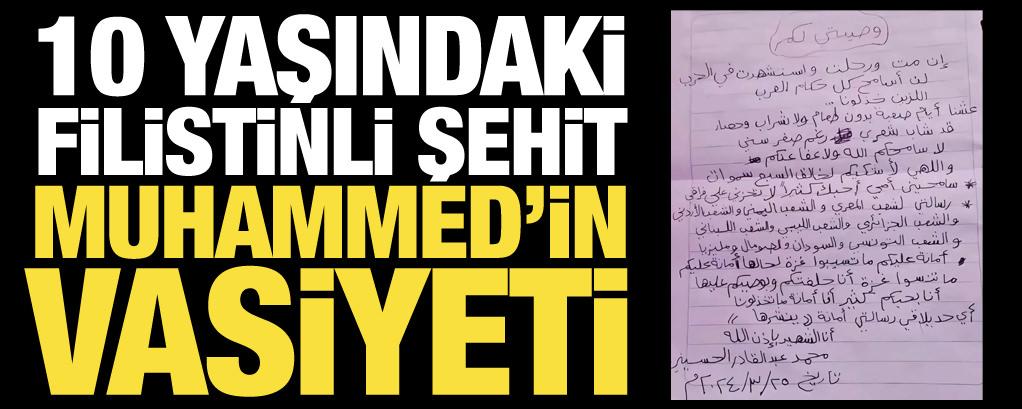 10 YAŞINDAKİ
FİLİSTİNLİ ŞEHİT
MUHAMMED'İN
VASİYETİ
وصيتي لكم
إن مت ورحلت واستشهدت في الحرب
لن أسامح كل حكام العرب
اللذين خذلونا..
عشنا أيام صعبة بدون طعام ولا شراب وحصار
قد شاب شعري رغم صغر سني
لا سامحكم الله ولا عفا عنكم
واللهي لأشكيكم لخالق السبع سموات
* سامحيني أمي أحبك كثيرا لا تحزني علي فراقي
* رسالتي لشعب المصري و الشعب اليمني والشعب الأردني
والشعب الجزائري والشعب الليبي والشعب اللبناني
و الشعب التونسي والسودان والصومال وماليزيا
أمانة عليكم ما تسيبوا غزة لحالها أمانة عليكم
ما تنسوا غزة أنا حلفتكم ووصيتكم عليها
أنا بحبكم كثير أنا أمانة ما تخذلونا
أي حد يلاقي رسالتي أمانة (( ينشرها ))
أنا الشهيد بإذن الله
محمد عبد القادر الحسيني
تاريخ ٢٠٢٤/٣/٢٥م